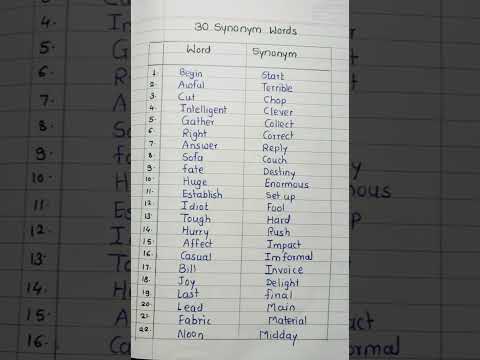 30 Synonym Words
Word Synonym
1. Begin Start
2. Awful Terrible
3. Cut Chop
4. Intelligent Clever
5. Gather Collect
6. Right Correct
7. Answer Reply
8. Sofa Couch
9. fate Destiny
10. Huge Enormous
11. Establish Set up
12. Idiot Fool
13. Tough Hard
14. Hurry Rush
15. Affect Impact
16. Casual Imformal
17. Bill Invoice
18. Joy Delight
19. Last final
20. Lead Main
21. Fabric Material
22. Noon Midday